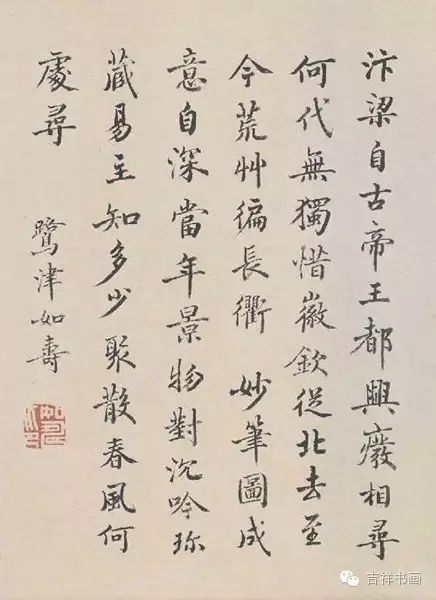 汴梁自古帝王都興廢相尋
何代無獨惜徽欽從北去至
今荒艸徧長衢 妙筆圖成
意自深當年景物對沉吟珎
藏易主知多少聚散春風何
處尋
鷺津如壽
吉祥书画